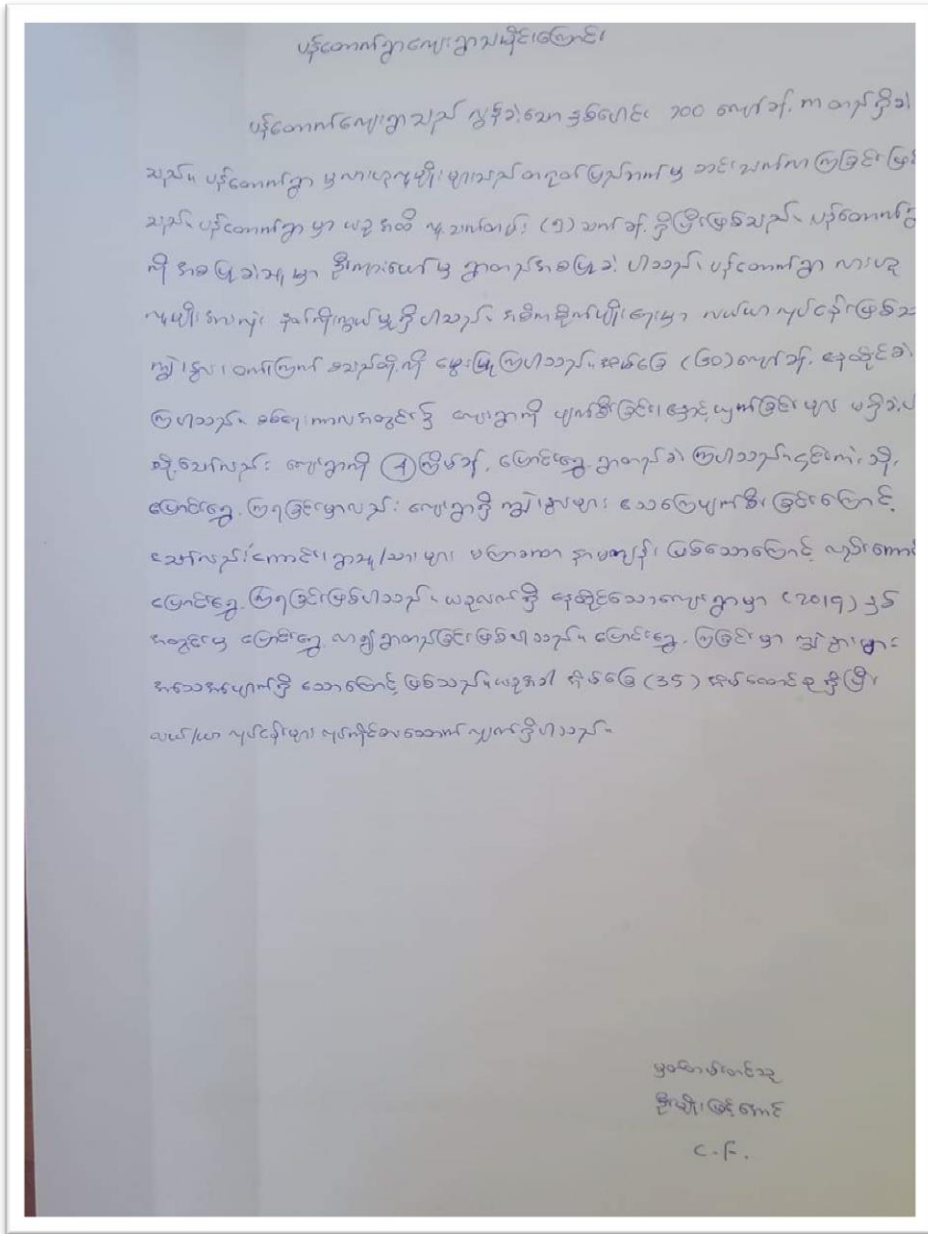 ပန်တောက်ရွာကျေးရွာသမိုင်းကြောင်း
ပန်တောက်ကျေးရွာသည် လွန်ခဲ့သော နှစ်ပေါင်း 700 ကျော်ခန့်. က တည်ရှိခဲ့
သည်။ ပန်တောက်ရွာ မှ လားဟူလူမျိုးများသည် တရုတ်ပြည်ဘက်မှ ဆင်းသက်လာကြခြင်းဖြစ်
သည်။ ပန်တောက်ရွာ မှာ ယခုအထိ လူ့သက်တမ်း (၅) သက်ခန့် ရှိပြီးဖြစ်သည်။ ပန်တောက်ရွာ
ကို အစပြုခဲ့သူ မှာ ဦးကျားပေါ် မှ ရွာတည်အစပြုခဲ့ ပါသည်။ ပန်တောက်ရွာ လားဟူ
လူမျိုးအားလုံး နတ်ကိုးကွယ်မှုရှိပါသည်။ အဓိကစိုက်ပျိုးရေးမှာ လယ်ယာလုပ်ငန်းဖြစ်သ
ကျွဲ၊ နွား၊ ဝက်၊ ကြက် စသည်တို့ကို မွေးမြူကြပါသည်။ အိမ်ခြေ (၆၀) ကျော်ခန့်. နေထိုင်ခဲ့
ကြပါသည်။ စစ်ရေးကာလအတွင်း၌ ကျေးရွာကို ဖျက်ဆီးခြင်း၊ နှောင့်ယှက်ခြင်းများ မရှိခဲ့ပ
သို့သော်လည်း ကျေးရွာကို ④ ကြိမ်ခန့်. ပြောင်းရွှေ့ ရွာတည်ခဲ့ ကြပါသည်။ ၎င်းကဲ့သို့
ပြောင်းရွှေ့ ကြရခြင်းမှာလည်း ကျေးရွာရှိ ကျွဲ၊ နွားများ သေကြေပျက်စီးခြင်းကြောင့်
သော်လည်းကောင်း၊ ရွာသူ/သားများ မကြာခဏ နာမကျန်း ဖြစ်သောကြောင့် လည်းကောင်
ပြောင်းရွှေ့ ကြရခြင်းဖြစ်ပါသည်။ ယခုလက်ရှိ နေထိုင်သောကျေးရွာမှာ (2019) ခုနှစ်
အတွင်းမှ ပြောင်းရွှေ့ လာ၍ ရွာတည်ခြင်းဖြစ်ပါသည်။ ပြောင်းရွှေ့ ကြခြင်းမှာ ကျွဲ၊ နွားများ
အသေအပျောက်ရှိ သောကြောင့် ဖြစ်သည်။ ယခုအခါ အိမ်ခြေ (35) အိမ်ထောင်စု ရှိပြီး
လယ်/ယာ လုပ်ငန်းများ လုပ်ကိုင်စားသောက်လျှက်ရှိပါသည်။
မှတ်တမ်းတင်သူ
ဦးမျိုးမြင့်အောင်
C.F.